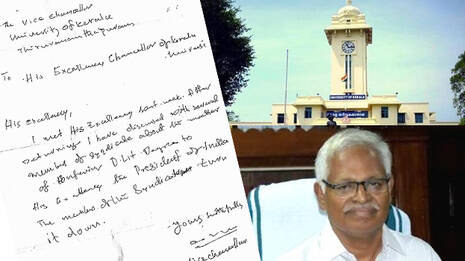 The Vice Chancellor
University of Kerala
Thiruvananthapuram
To His Excellency Chancellor of Kerala
His Excellency,
I met His Excellency last week. After
returning I have discussed with several
member of Syndicate about the matter
of Conferring D.Lit Degree to
His Excellency the President of India
The members of the Syndicate turn
it down.
yours faithfully
UNIVERSITY OF KERALA